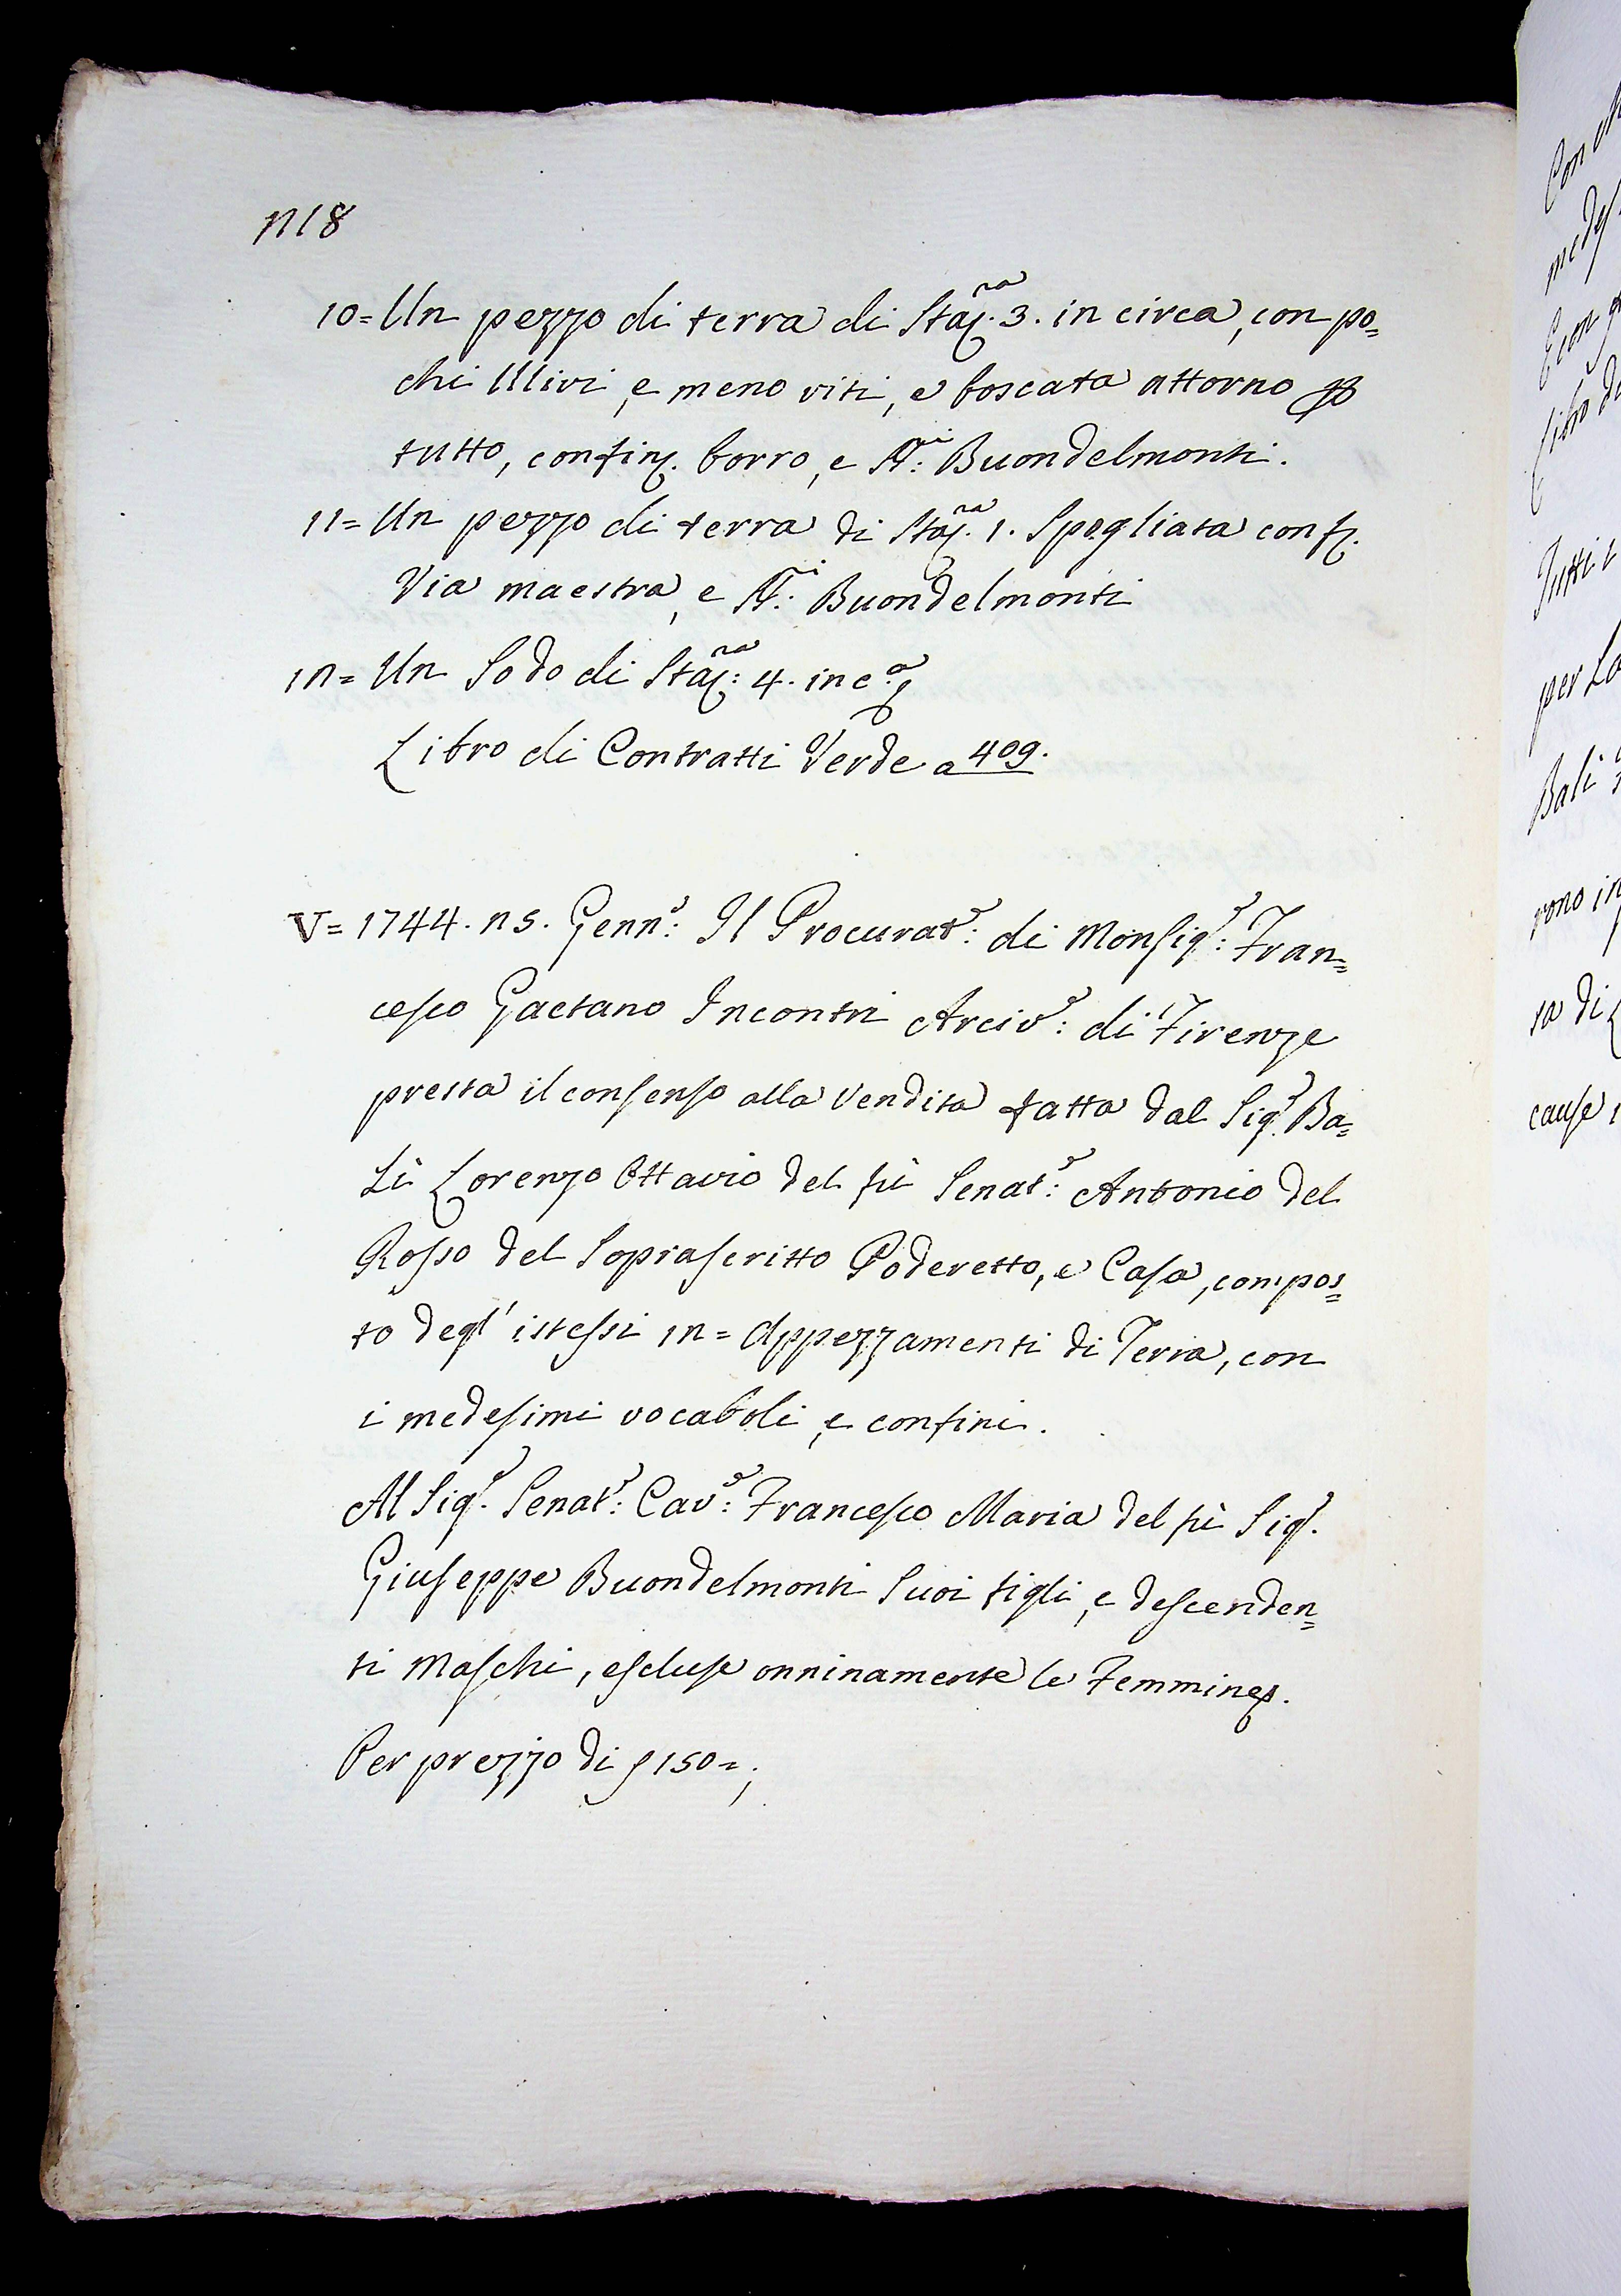 218
10= Un pezzo di terra di Staj.ra 3. in circa, con po=
chi Ulivi, e meno viti, e boscata attorno p
tutto, confin. borro, e SS.ri: Buondelmonti.
11= Un pezzo di terra di Staj.ra 1. Spogliata conf.
Via maestra, e SS.ri: Buondelmonti
12= Un Sodo di Staj.ra: 4. in c.a
Libro di Contratti Verde a 409.
V= 1744. 25. Genn.o: Il Procurat.e: di Monsig.e: Fran=
cesco Gaetano Incontri Arciv.o: di Firenze
presta il consenso alla Vendita fatta dal Sig.e Ba=
lì Lorenzo Ottavio del fù Senat.e: Antonio del
Rosso del Soprascritto Poderetto, e Casa, compos=
to degl' istessi 12= Appezzamenti di Terra, con
i medesimi vocaboli, e confini.
Al Sig.e Senat.e: Cav.e: Francesco Maria del fù Sig.e
Giuseppe Buondelmonti Suoi figli, e descenden=
ti Maschi, escluse onninamente le Femmine.
Per prezzo di 150=,
Con
mede
E con
Libro d
Tutti i
per Lo
Balì
rono in
ta di
cause